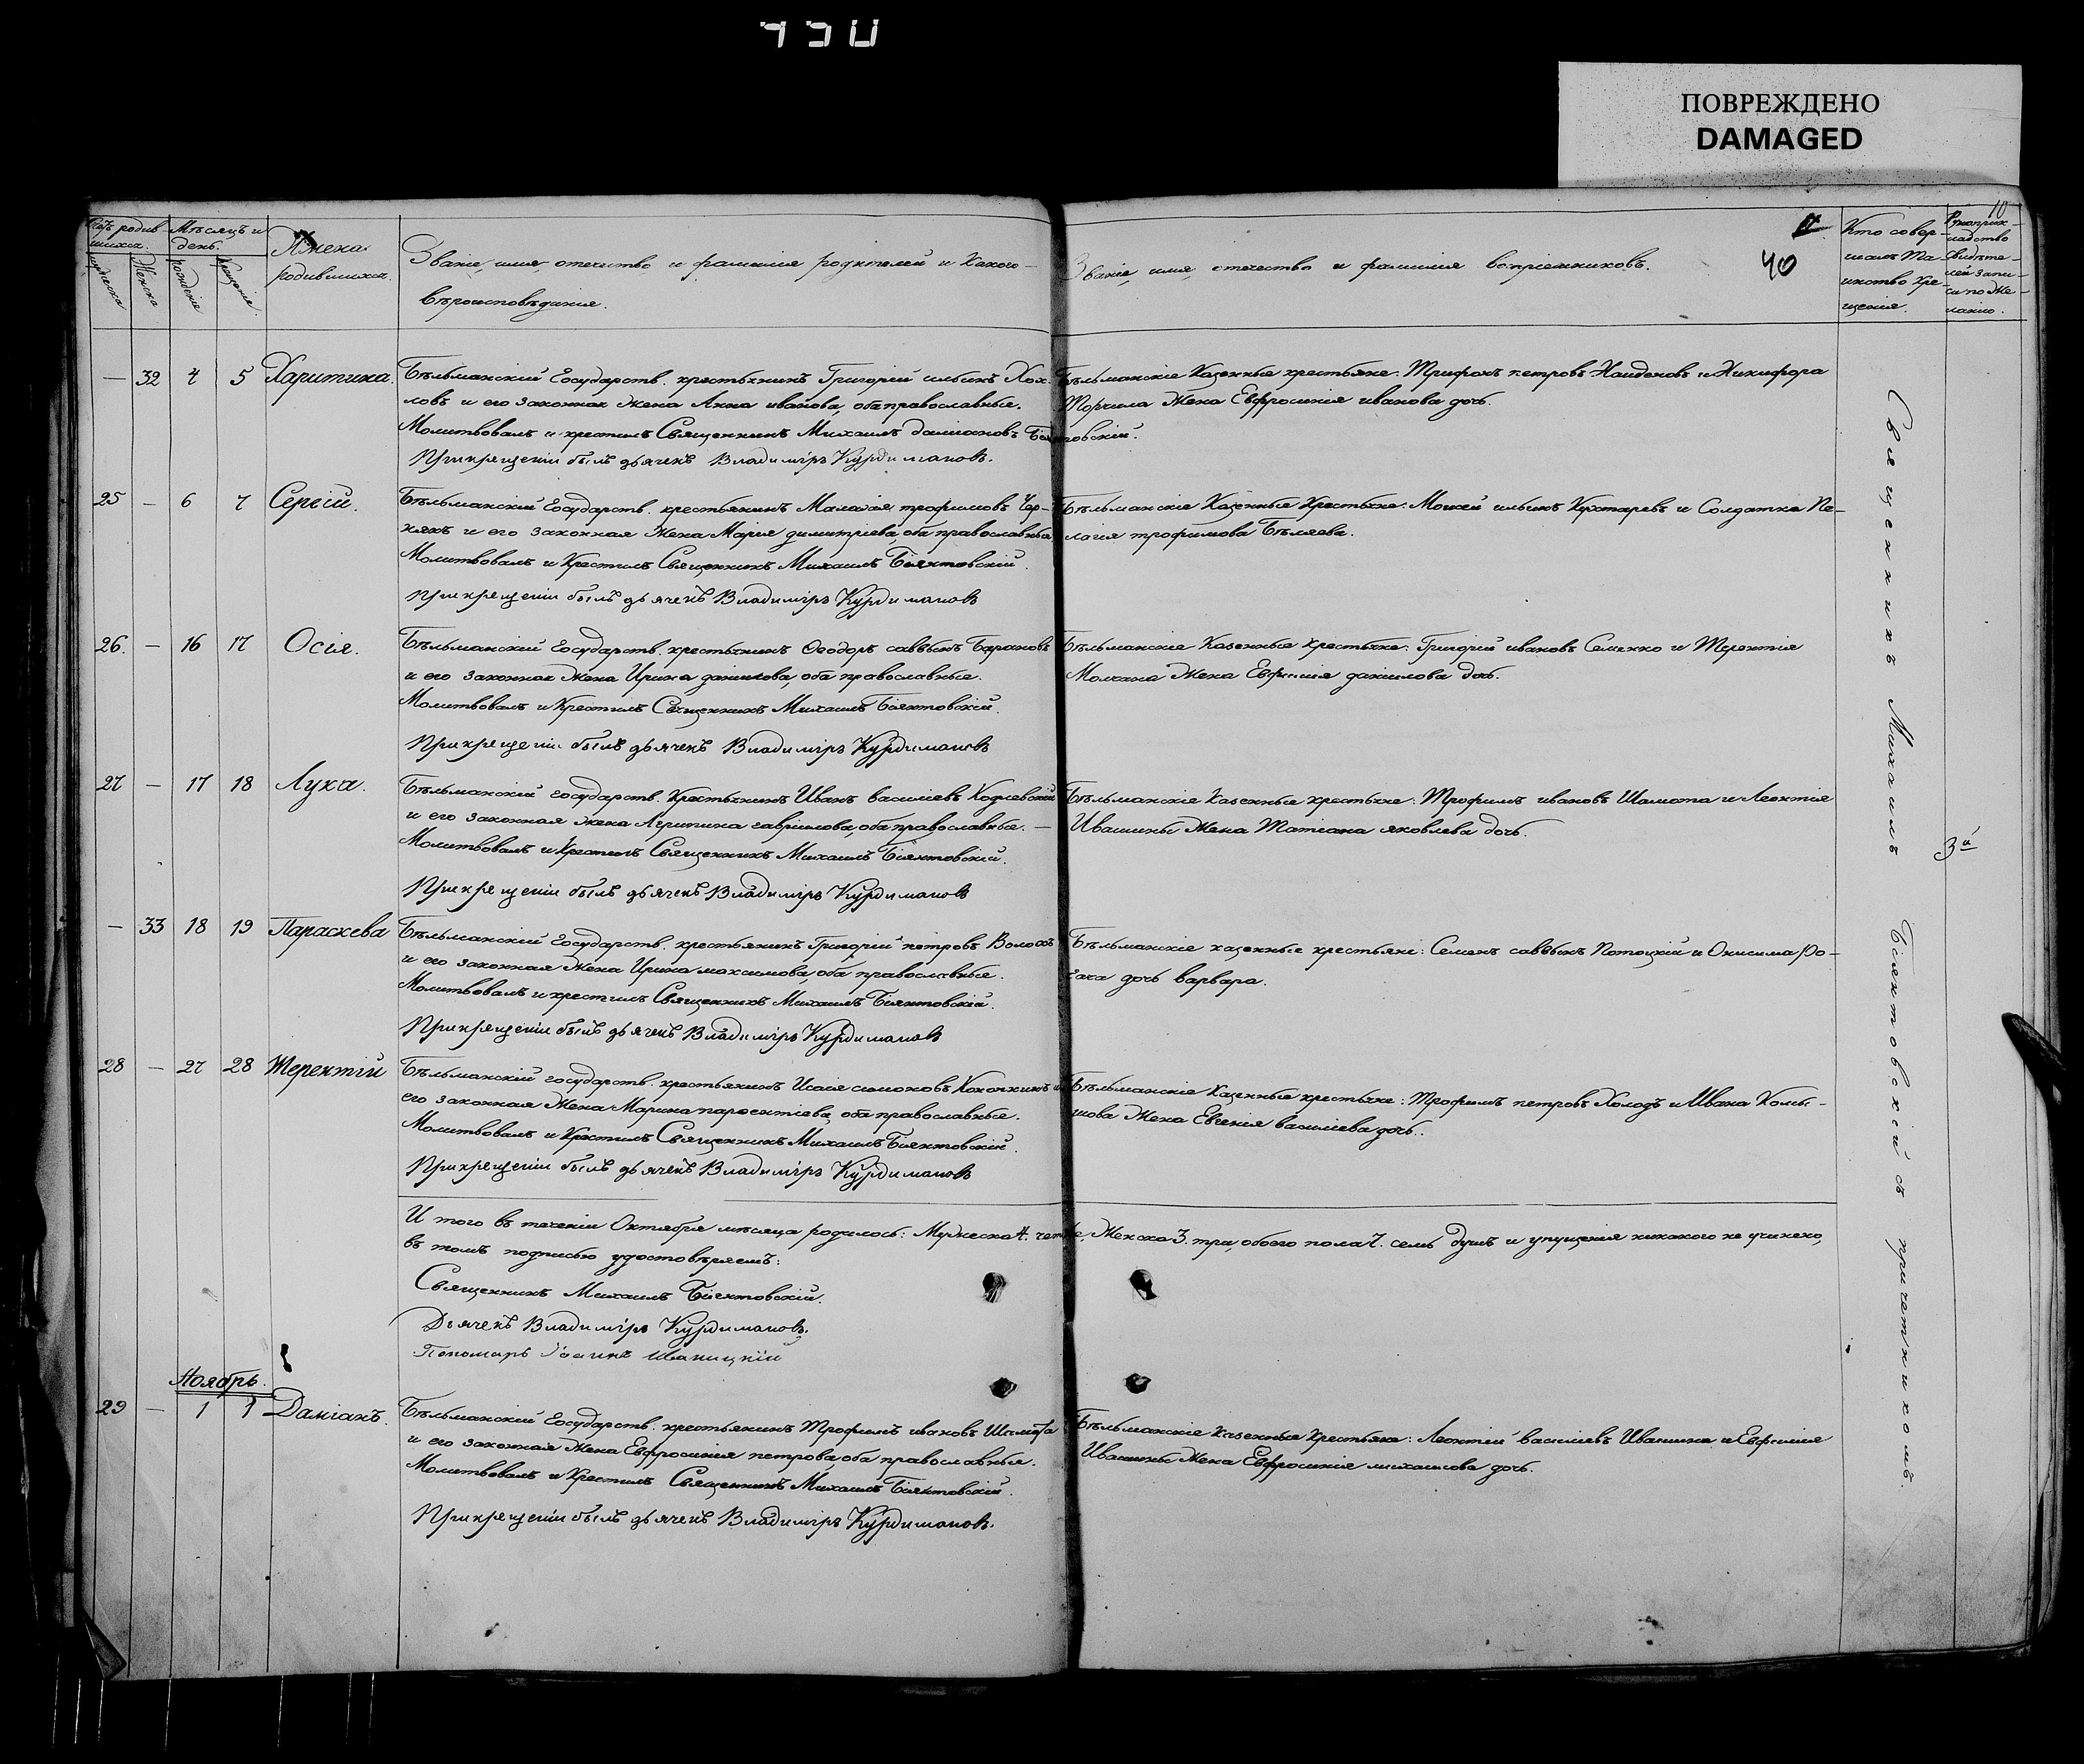 ПОВРЕЖДЕНО
DAMAGED
10
40
Счетъ родив
шихся.
Мѣсяцъ и
день.
Имена
родившихся.
Званіе, имя, отечество и фамилія родителей и Какого
вѣроисповѣданія.
Званіе, имя, отечество и фамилія воспріемниковъ.
Кто совер-
шалъ Та-
инство Кре-
щенія.
Рукоприк-
ладство
Свидѣте-
лей запи-
си по Же-
ланію.
Мужеска
Женска
рожденія
Крещенія
— 32 4 5 Харитина.
Бѣльманскій Государств. крестьянинъ Григорій ильинъ Хох-
ловъ и его законная жена Анна иванова, оба православные.
Молитвовалъ и крестилъ Священникъ Михаилъ даміановъ Біянтовскій.
При крещеніи былъ дьячекъ Владиміръ Курдимановъ.
Бѣльманскіе Казенные крестьяне: Трифонъ петровъ Найденовъ и Никифора
Торчила Жена Евфросинія иванова дочь.
25 — 6 7 Сергій.
Бѣльманскій Государств. крестьянинъ Малахія трофимовъ Чер-
някъ и его законная Жена Марія димитріева, оба православные,
Молитвовалъ и Крестилъ Священникъ Михаилъ Біянтовскій.
При крещеніи былъ дьячекъ Владиміръ Курдимановъ
Бѣльманскіе Казенные Крестьяне: Моисей ильинъ Кухтаревъ и Солдатка Пе-
лагія трофимова Бѣляева.
26. — 16 17 Осія.
Бѣльманскій Государств. крестьянинъ Ѳеодоръ саввынъ Барановъ
и его законная Жена Ирина данилова, оба православные.
Молитвовалъ и Крестилъ Священникъ Михаилъ Біянтовскій.
При крещеніи былъ дьячекъ Владиміръ Курдимановъ
Бѣльманскіе Казенные крестьяне: Григорій ивановъ Семенко и Терентія
Молчана Жена Евфимія даниилова дочь.
27 — 17 18 Лука.
Бѣльманскій государств. Крестьянинъ Иванъ василіевъ
и его законная жена Агрипина гавріилова, оба православные. —
Молитвовалъ и Крестилъ Священникъ Михаилъ Біянтовскій.
При крещеніи былъ дьячекъ Владиміръ Курдимановъ
Бѣльманскіе Казенные крестьяне: Трофимъ ивановъ Шамота и Леонтія
Ивашины Жена Татіана яковлева дочь.
— 33 18 19 Параскева
Бѣльманскій Государств. крестьянинъ Григорій петровъ Волохъ
и его законная Жена Ирина максимова, оба православные.
Молитвовалъ и крестилъ Священникъ Михаилъ Біянтовскій.
При крещеніи былъ дьячекъ Владиміръ Курдимановъ
Бѣльманскіе казенные крестьяне: Семенъ саввынъ Потоцкій и Онисима Ро-
гача дочь варвара.
28 — 27 28 Терентій
Бѣльманскій государств. крестьянинъ Исаія симоновъ Коноnкинъ и
его законная Жена Марина парѳентіева, оба православные.
Молитвовалъ и Крестилъ Священникъ Михаилъ Біянтовскій.
При крещеніи былъ дьячекъ Владиміръ Курдимановъ
Бѣльманскіе Казенные крестьяне: Трофимъ петровъ Холодъ и Ивана Комы-
шова Жена Евгенія василіева дочь.
И того въ теченіи Октября мѣсяца родилось: Мужеска 4. четыре, Женска 3. три, обоего пола 7. семь душъ и упущенія никакого не учинено,
въ томъ подписью удостовѣряемъ:
Священникъ Михаилъ Біянтовскій.
Дьячекъ Владиміръ Курдимановъ.
Пономарь
Ноябрь.
29 — 1 1 Даміанъ.
Бѣльманскій Государств. крестьянинъ Трофимъ ивановъ Шамота
и его законная Жена Евфросинія петрова, оба православные.
Молитвовалъ и Крестилъ Священникъ Михаилъ Біянтовскій.
При крещеніи былъ дьячекъ Владиміръ Курдимановъ.
Бѣльманскіе Казенные Крестьяне: Леонтій василіевъ Ивашина и Евфимія
Ивашины Жена Евфросинія михаилова дочь.
Священникъ Михаилъ Біянтовскій съ причетникомъ.
3й